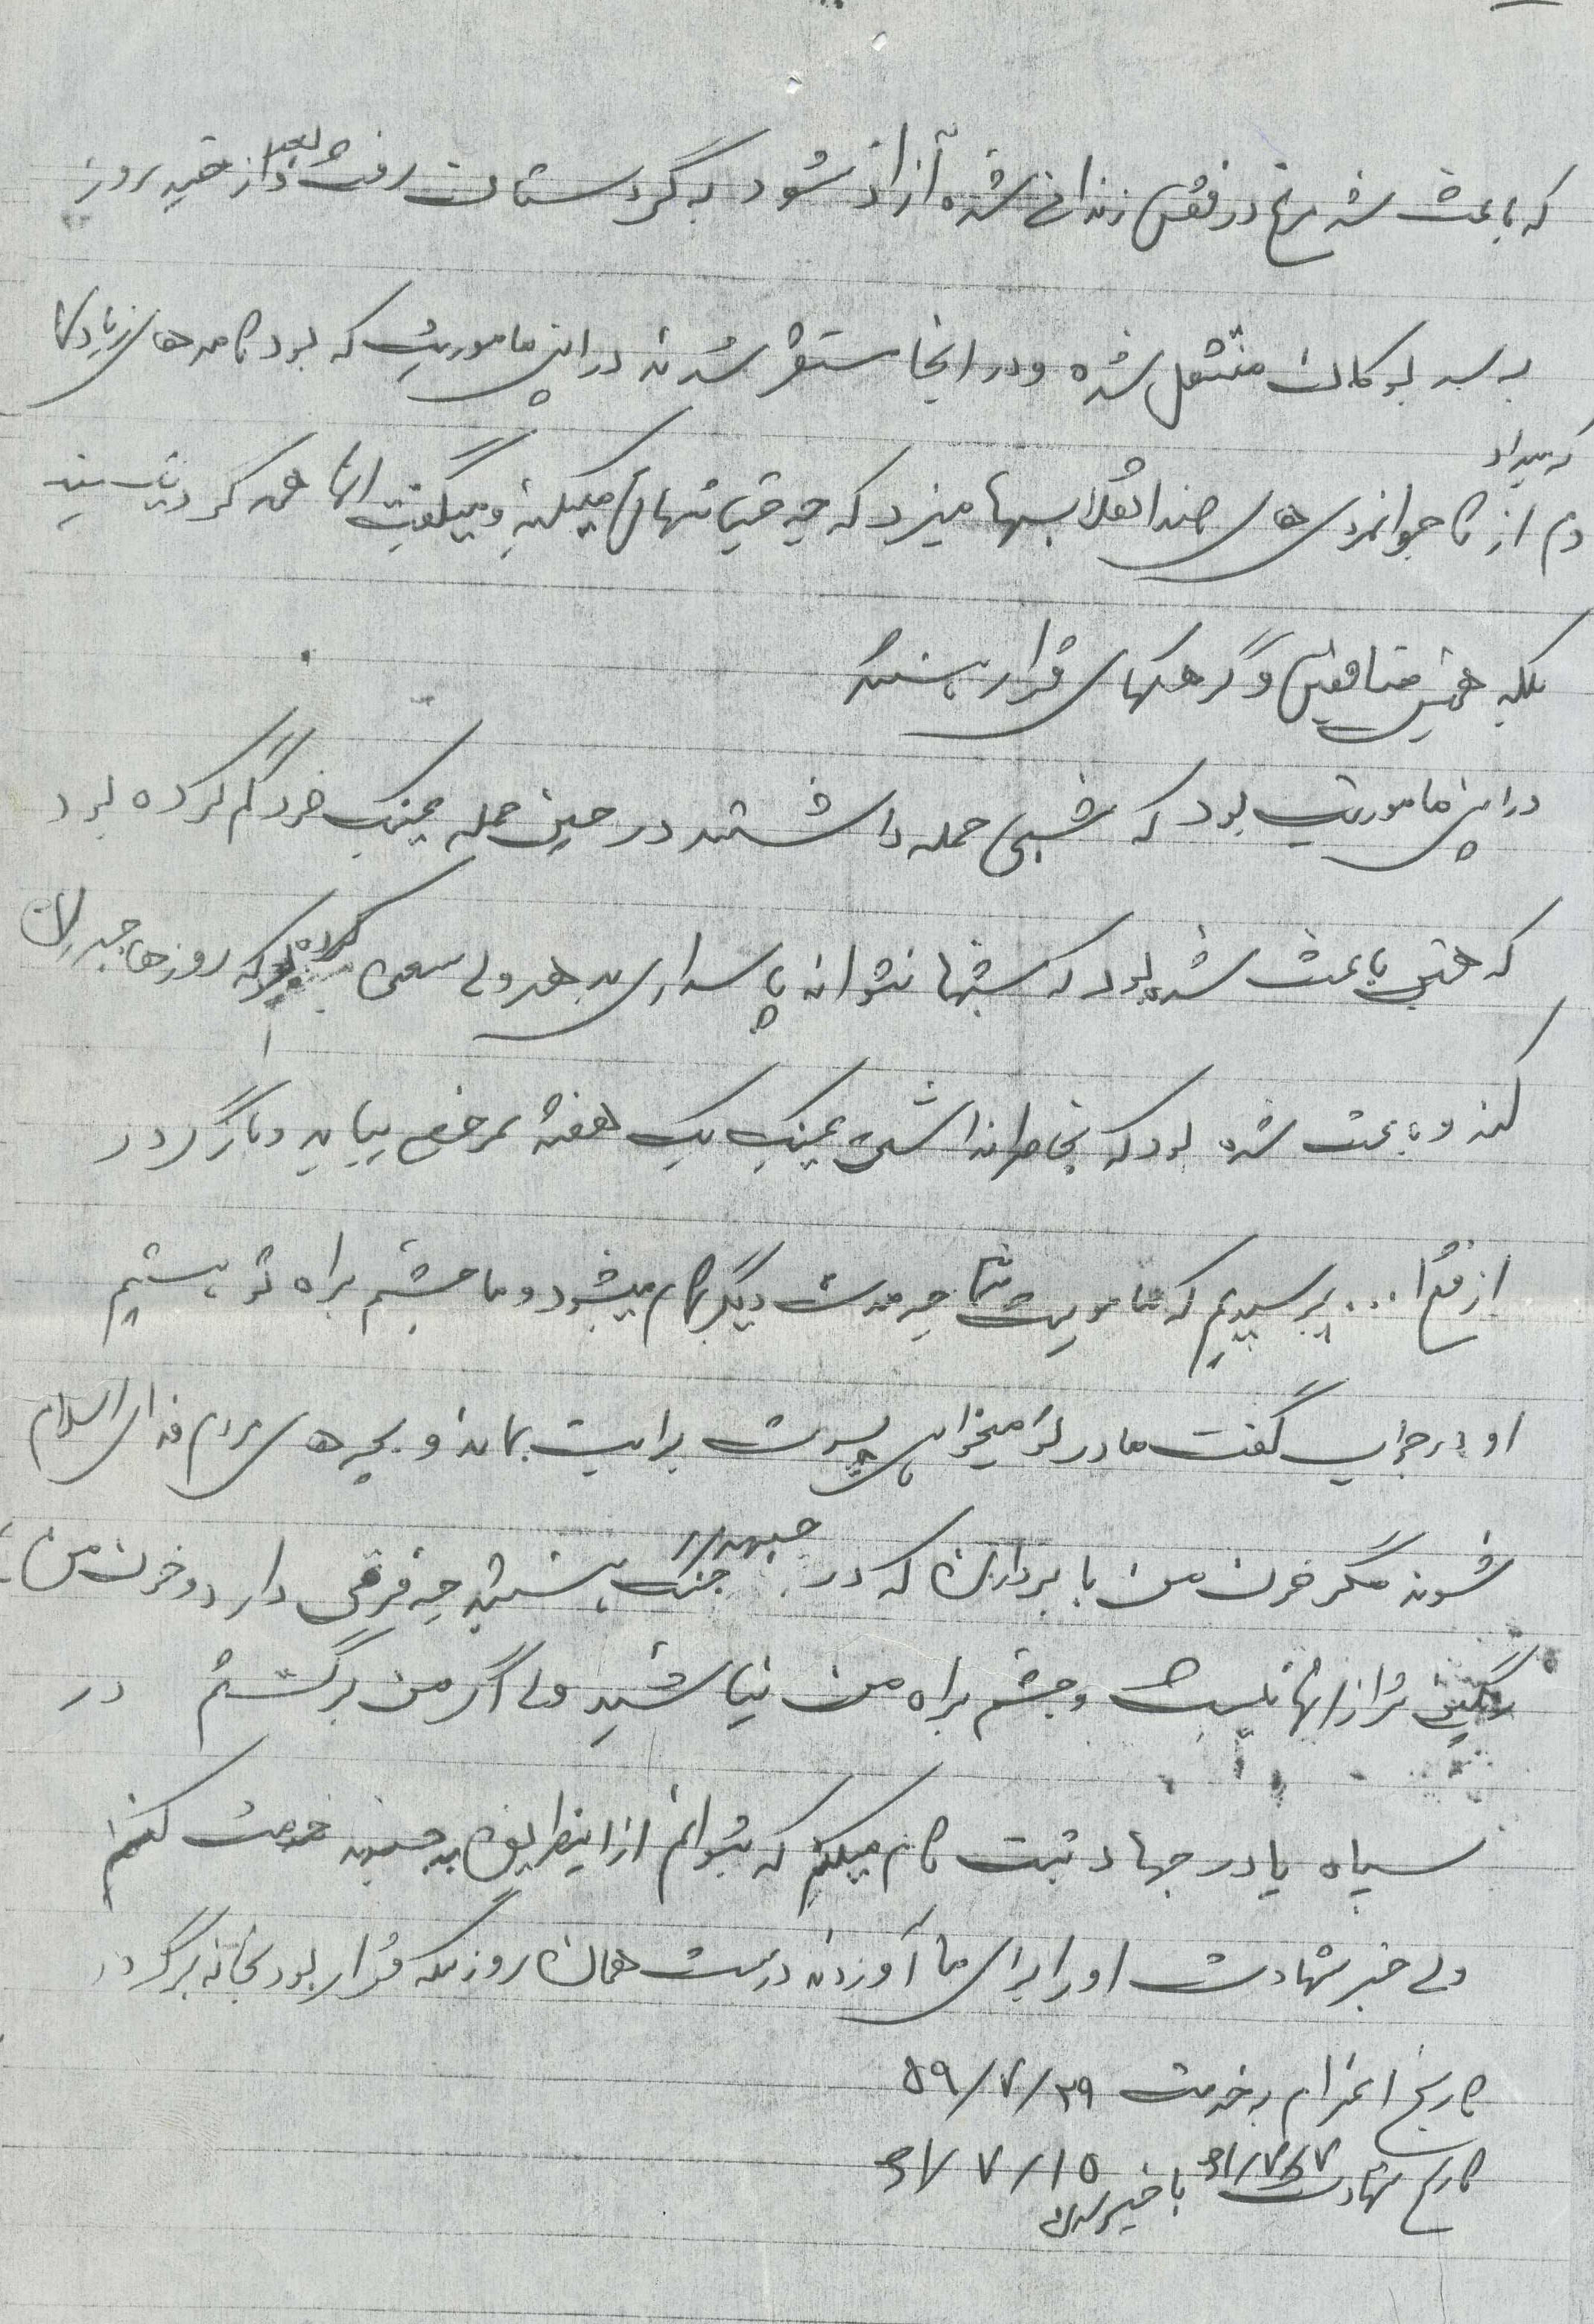 که باعث شد مرغ در قفس زندانی شده آزاد شود به کردستان رفت و بعد از چند روز
به سد بوکان منتقل شده و در انجا مستقر شدند در این ماموریت که بود نامه های زیادی
که میداد
دم از ناجوانمردی های ضد انقلابیها میزد که چه خیانتهای میکنند و میگفت انها هم کرد نیستند
بلکه همین منافقین و گرهکهای فراری هستند
در این ماموریت بود که شبی حمله داشتند در حین حمله عینک خود گم کرده بود
که همین باعث شده بود که شبها نتواند پاسداری بدهد ولی سعی کرده بود که روزها جبران
کند و باعث شده بود که بخاطر نداشتن عینک یک هفته مرخصی بیاید و باز گردد
از پرسیدیم که ماموریت شما چه مدت دیگر تمام میشود و ما چشم براه تو هستیم
او در جواب گفت مادر تو میخواهی پسرت برایت بماند و بچه های مردم فدای اسلام
شوند مگر خون من با برداران که در جبهه جنگ هستند چه فرقی دارد و خون من
رنگین تر از انها نیست و چشم براه من نباشید ولی اگر من برگشتم در
سپاه یا در جهاد ثبت نام میکنم که بتوانم از اینطریق به خدمت کنم
ولی خبر شهادت او را برای ما آوردند درست همان روزیکه قرار بود بخانه برگردد
تاریخ اعزام بخدمت ۵۹/۷/۲۹
تاریخ شهادت ۶۱/۷/۷ با خبر شدن ۶۱/۷/۱۵